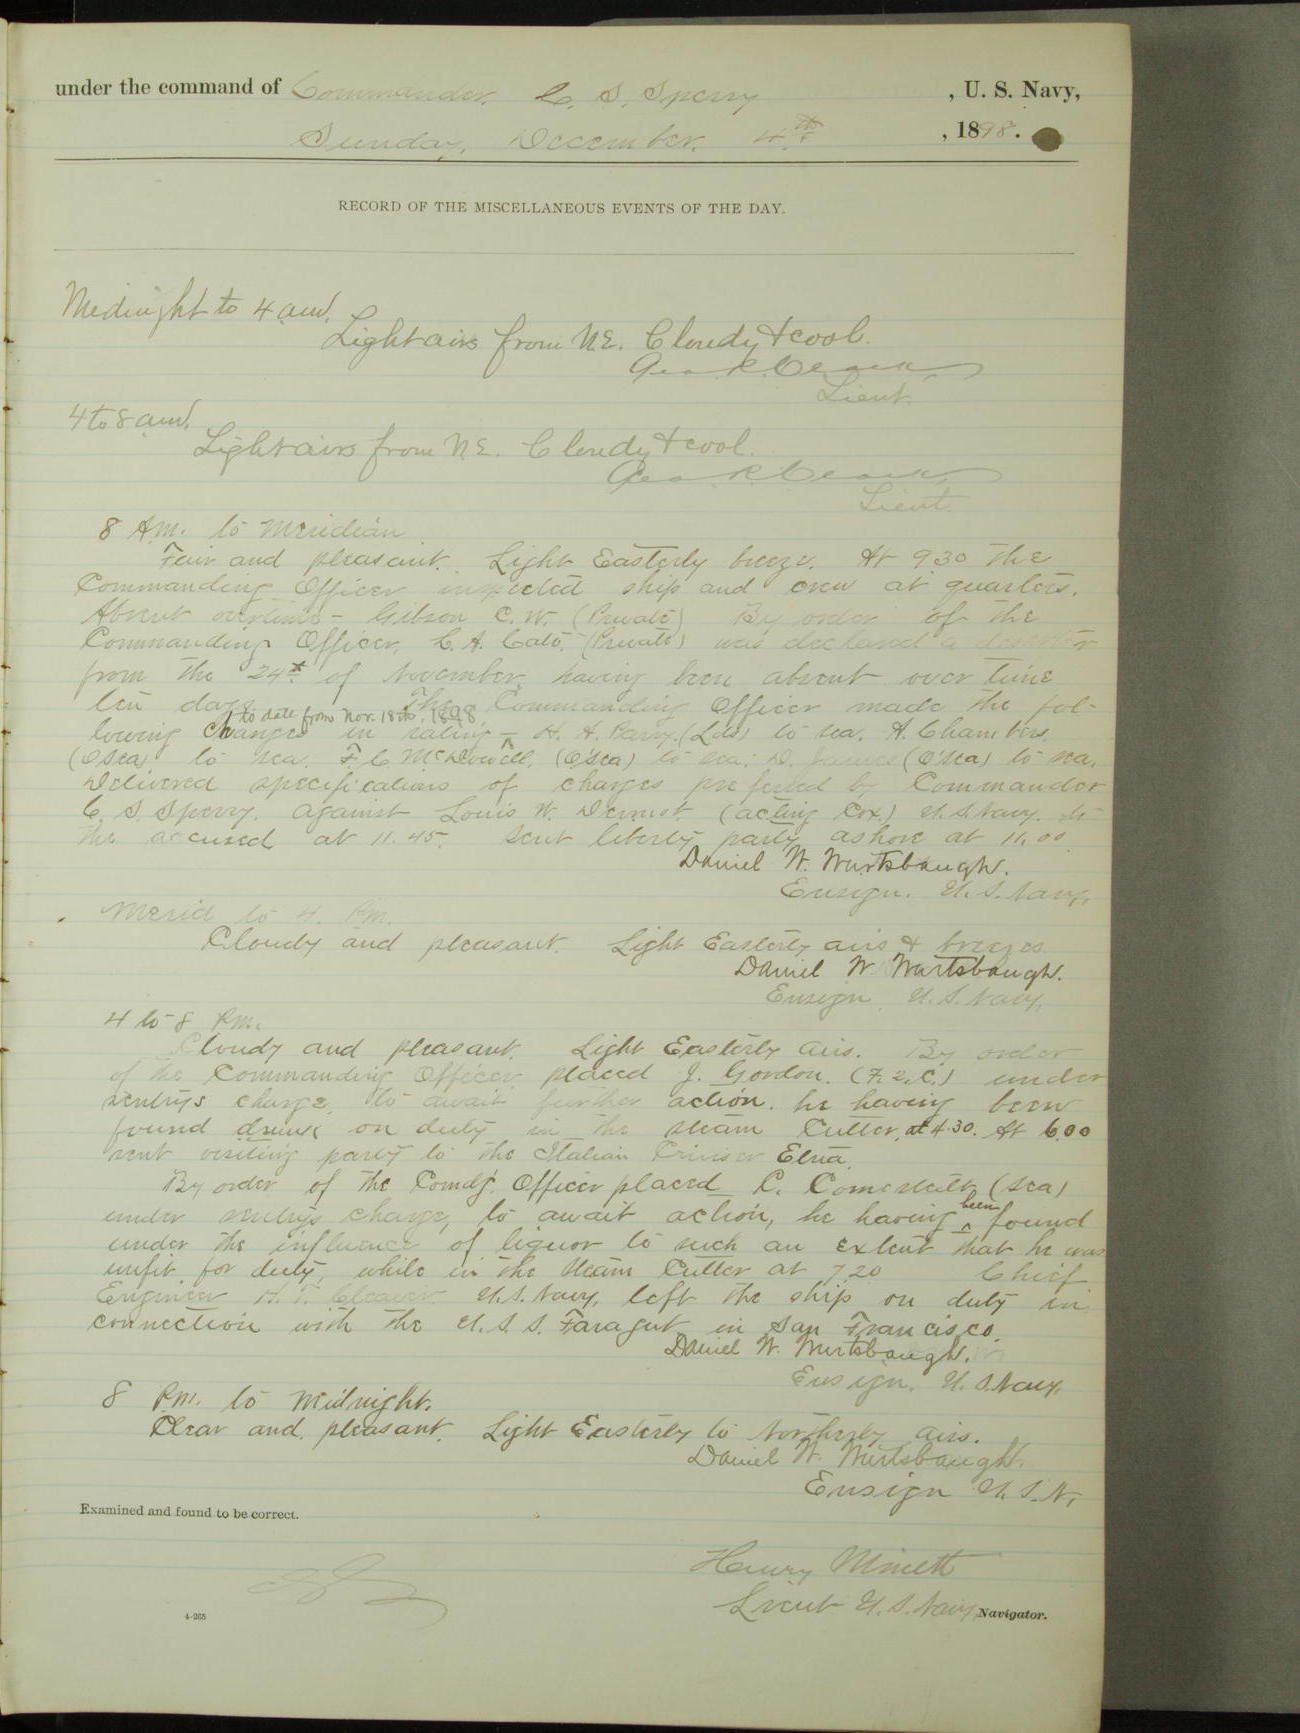 under the command of Commander C. S. Sperry , U. S. Navy,
Sunday, December 4th , 1898.
RECORD OF THE MISCELLANEOUS EVENTS OF THE DAY.
Midnight to 4 am.
Light airs from N.E. Cloudy & cool.
Geo. R. Clark
Lieut.
4 to 8 am.
Light airs from N.E. Cloudy & cool.
Geo. R. Clark
Lieut.
8 A.M. to Meridian
Fair and pleasant. Light Easterly breeze. At 9.30 the
Commanding Officer inspected ship and crew at quarters.
Absent overtime - Gibson C. W. (Private) By order of the
Commanding Officer, C. A. Cato, (Private) was declared a deserter
from the 24th of November, having been absent over time
ten days. The Commanding Officer made the fol-
to date from Nov. 18th, 1898
lowing changes in rating - H. A. Parry, (Lds) to sea. A. Chambers,
(O'Sea) to sea. F. C. McDowell, (O'Sea) to sea; D. James (O'Sea) to sea.
Delivered specifications of charges preferred by Commander
C. S. Sperry. against Louis W. Dermot. (acting Cox.) U.S. Navy. to
the accused at 11.45. Sent liberty party ashore at 11.00
Daniel W. Wurtsbaugh.
Ensign. U.S. Navy.
Merid to 4. P.M.
Cloudy and pleasant. Light Easterly airs & breezes.
Daniel W. Wurtsbaugh.
Ensign U.S. Navy.
4 to 8 P.M.
Cloudy and pleasant. Light Easterly airs. By order
of the Commanding Officer placed J. Gordon. (F. 2. C.) under
sentry's charge, to await further action. he having been
found drunk on duty in the steam Cutter, at 4.30. At 6.00
sent visiting party to the Italian Cruiser Etna.
By order of the Comd'g. Officer placed C. (Sea)
under sentry's charge, to await action, he having been found
under the influence of liquor to such an extent that he was
unfit for duty, while in the steam Cutter at 7.20 Chief
Engineer H. T. Cleaver U.S. Navy, left the ship on duty in
connection with the U.S.S. Faragut in San Francisco.
Daniel W. Wurtsbaugh.
Ensign. U.S. Navy.
8 P.M. to Midnight.
Clear and pleasant. Light Easterly to Northerly airs.
Daniel W. Wurtsbaugh.
Ensign U.S.N.
Examined and found to be correct.
Henry Minett
Lieut U.S. Navy, Navigator.
4-265